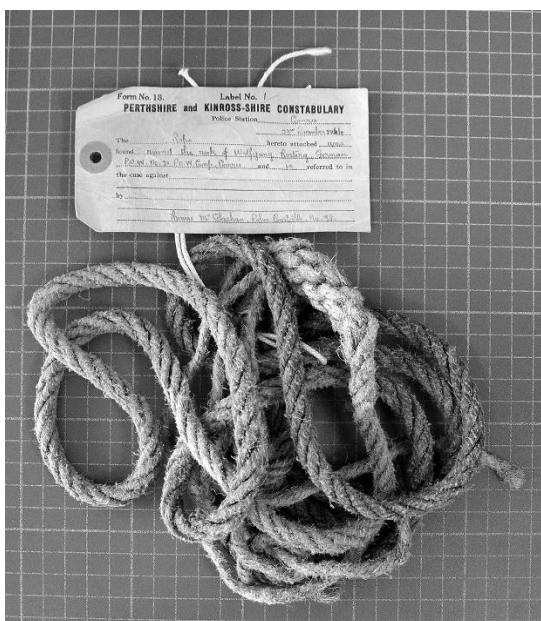 Form No. 18. Label No. 1
PERTHSHIRE and KINROSS-SHIRE CONSTABULARY
Police Station, Comrie
23rd December
The Rope hereto attached was
found round the neck of Wolfgang Rosterg, German
P.O.W. No. 21 P.O.W. Camp, Comrie and is referred to in
the case against
by